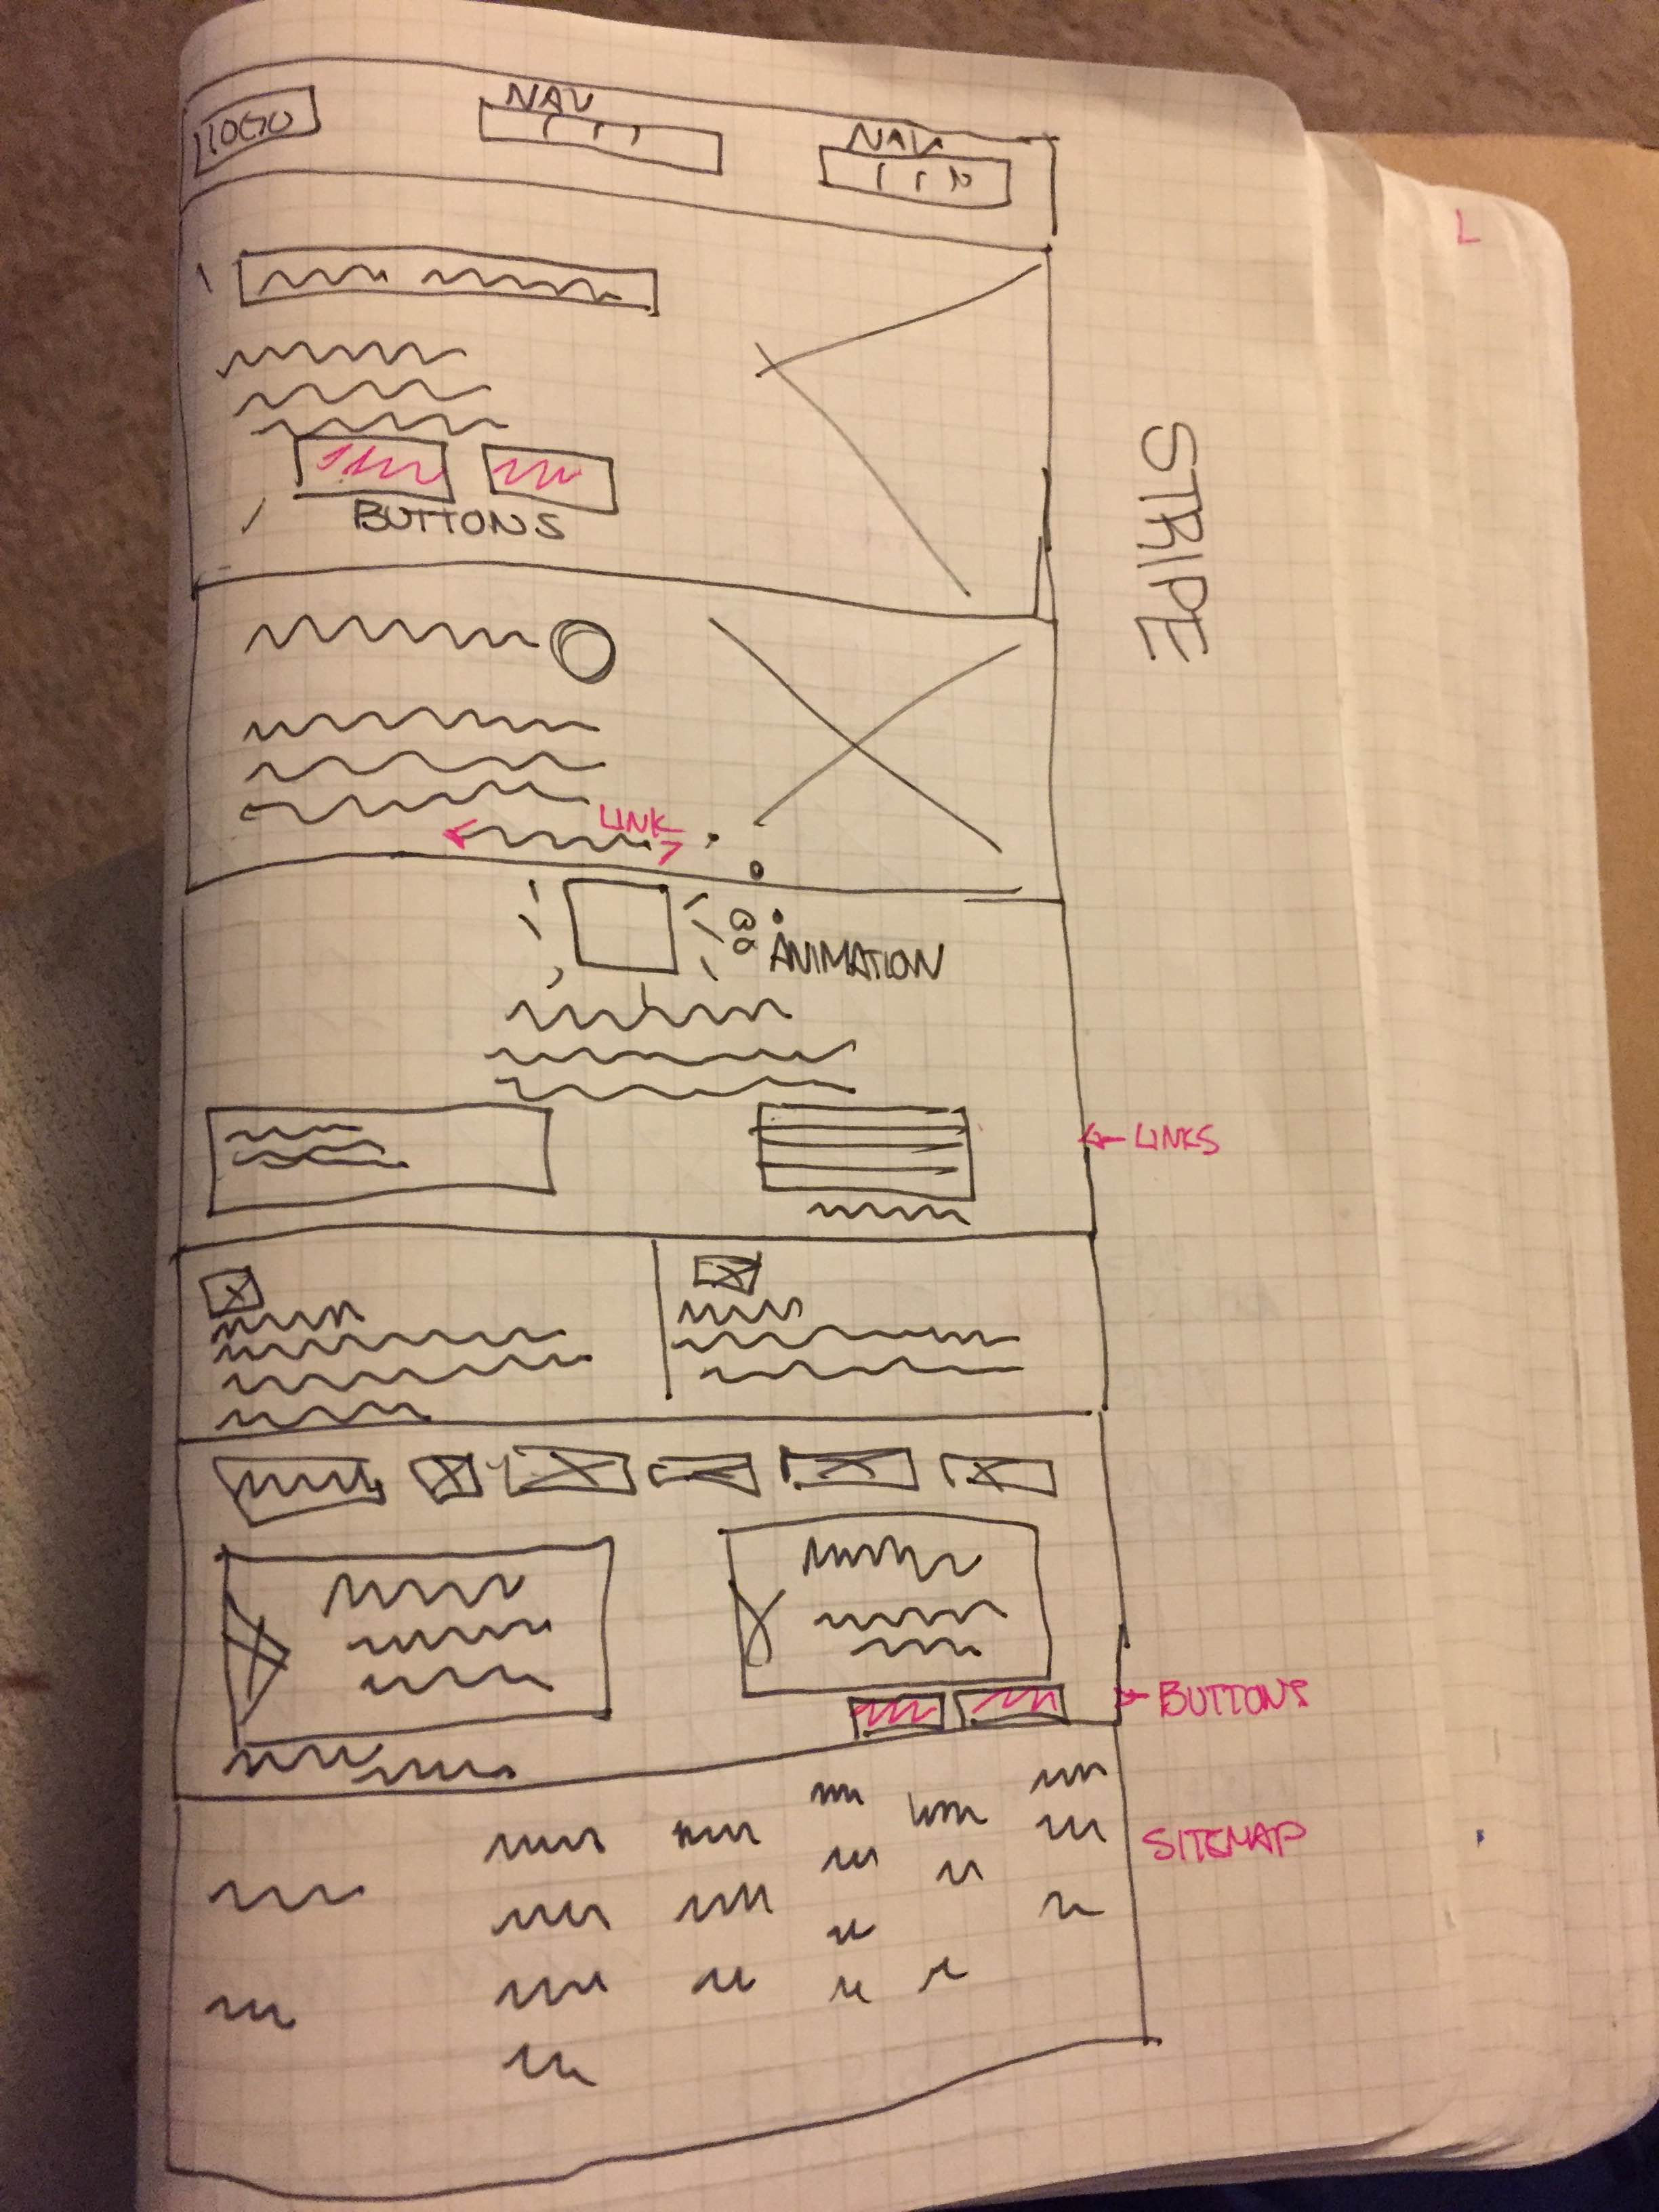 LOGO
NAV
NAV
BUTTONS
STRIPE
LINK
ANIMATION
LINKS
BUTTONS
SITEMAP
L